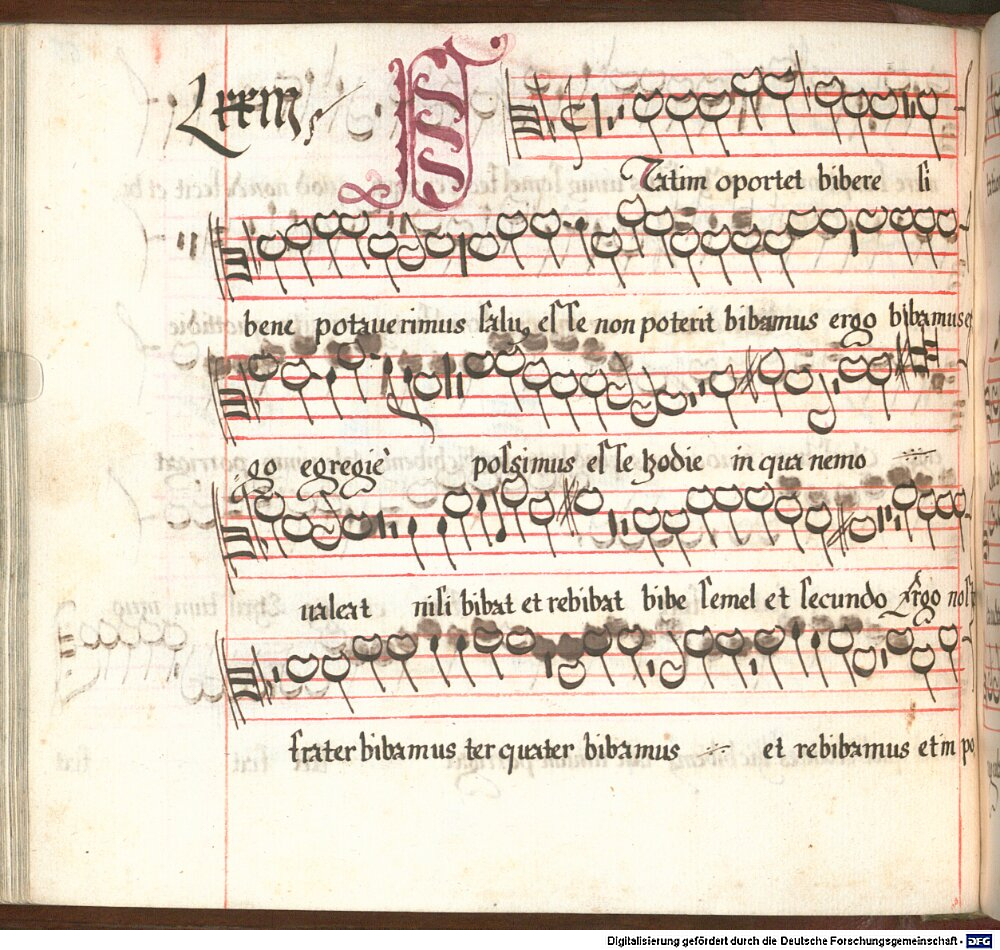 Lxxiii
Statim oportet bibere si
bene potauerimus salu esse non poterit bibamus ergo bibamus e
go egregie possimus esse hodie in qua nemo
ualeat nisi bibat et rebibat bibe semel et secundo Ergo nost
frater bibamus ter quater bibamus et rebibamus et in po
Digitalisierung gefördert durch die Deutsche Forschungsgemeinschaft - DFG